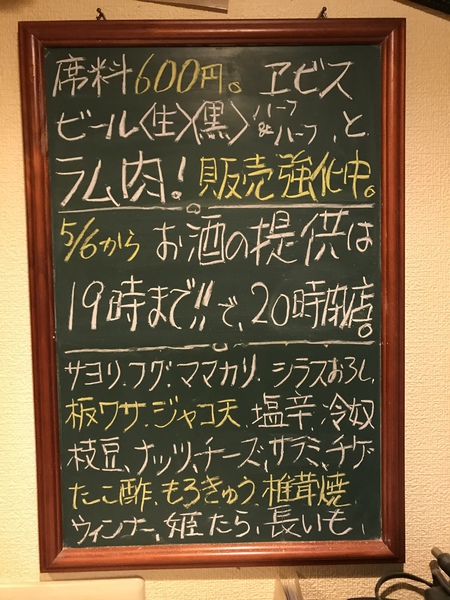 席料600円。ヱビス
ビール〈生〉〈黒〉ハーフ&ハーフ、と
ラム肉！販売強化中。
5/6からお酒の提供は
19時まで!!で、20時閉店。
サヨリ、フグ、ママカリ、シラスおろし、
板ワサ、ジャコ天、塩辛、冷奴
枝豆、ナッツ、チーズ、サラミ、チゲ
たこ酢、もろきゅう、椎茸焼
ウィンナー、姫たら、長いも、